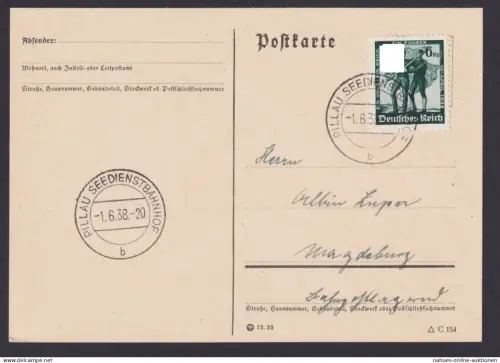 Absender:
Wohnort, auch Zustell- oder Leitpostamt
Straße, Hausnummer, Gebäudeteil, Stockwerk od. Postschließfachnummer
Postkarte
6
Deutsches Reich
PILLAU SEEDIENSTBAHNHOF
-1.6.38.
b
PILLAU SEEDIENSTBAHNHOF
-1.6.38.-20
b
Herrn
Albin Luper
Magdeburg
Bahnpostlagernd
Straße, Hausnummer, Gebäudeteil, Stockwerk oder Postschließfachnummer
12.35
C 154
www.nahues-online-auktionen